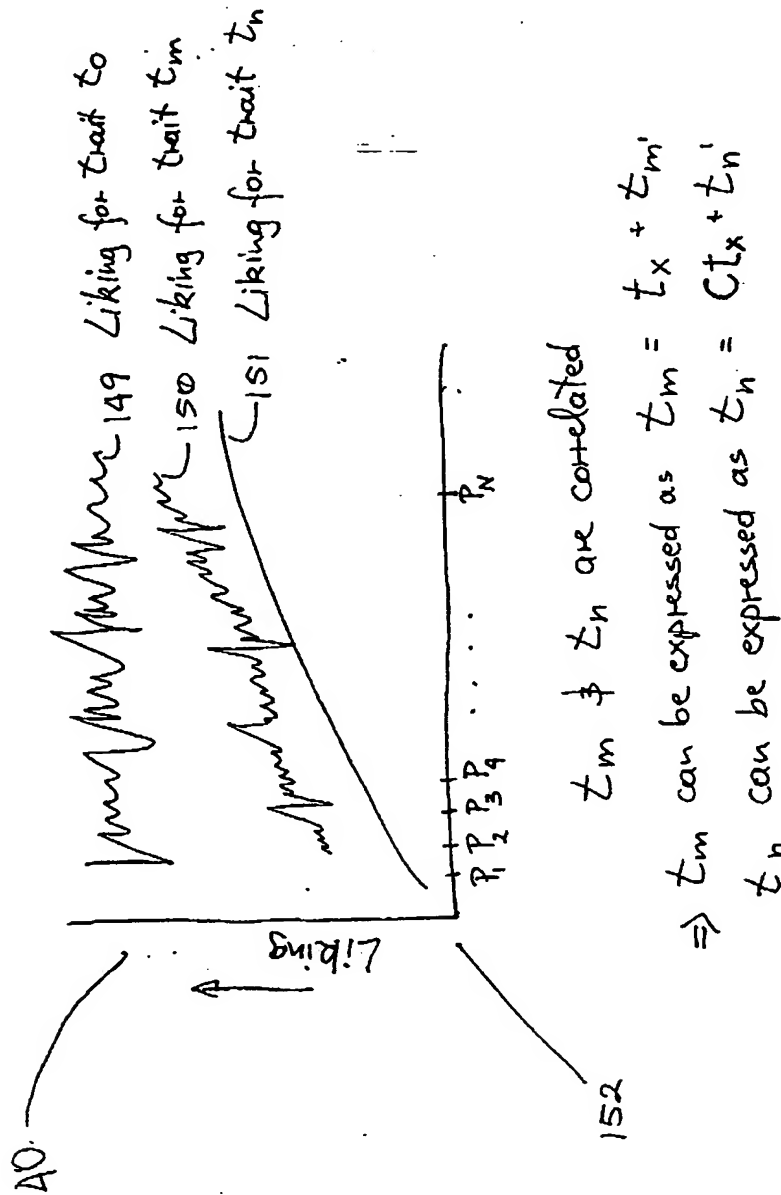 40
149 Liking for trait t₀
150 Liking for trait tₘ
151 Liking for trait tₙ
Liking
P₁ P₂ P₃ P₄ . . . . P_N
152
tₘ & tₙ are correlated
⇒ tₘ can be expressed as tₘ = tₓ + tₘ'
tₙ can be expressed as tₙ = Ctₓ + tₙ'